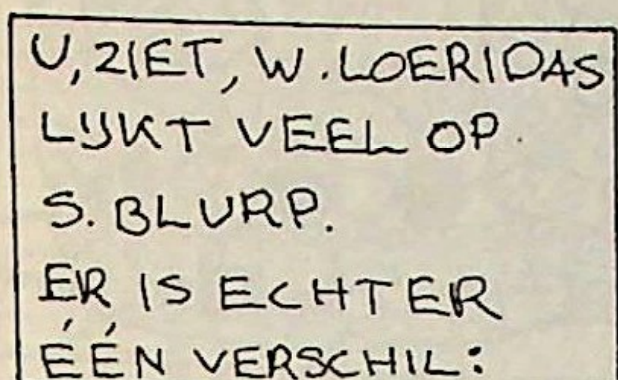 U, ZIET, W. LOERIDAS
LIJKT VEEL OP
S. BLURP.
ER IS ECHTER
ÉÉN VERSCHIL: